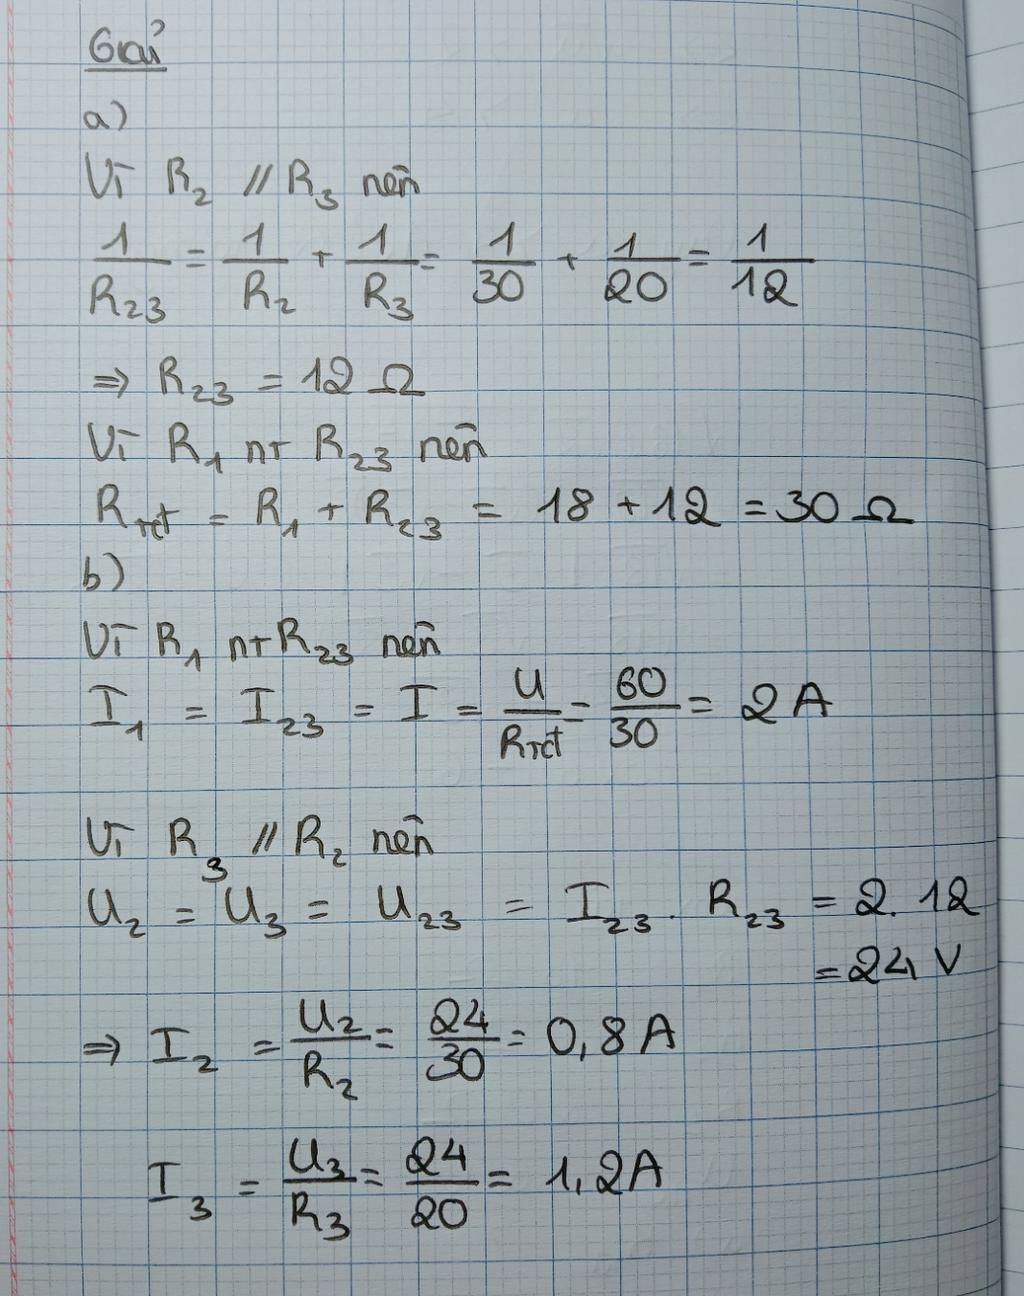 Giải
a)
Vì R₂ // R₃ nên
1/R₂₃ = 1/R₂ + 1/R₃ = 1/30 + 1/20 = 1/12
⇒ R₂₃ = 12 Ω
Vì R₁ nt R₂₃ nên
Rtđ = R₁ + R₂₃ = 18 + 12 = 30 Ω
b)
Vì R₁ nt R₂₃ nên
I₁ = I₂₃ = I = U/Rtđ = 60/30 = 2 A
Vì R₃ // R₂ nên
U₂ = U₃ = U₂₃ = I₂₃ . R₂₃ = 2. 12
= 24 V
⇒ I₂ = U₂/R₂ = 24/30 = 0,8 A
I₃ = U₃/R₃ = 24/20 = 1,2A